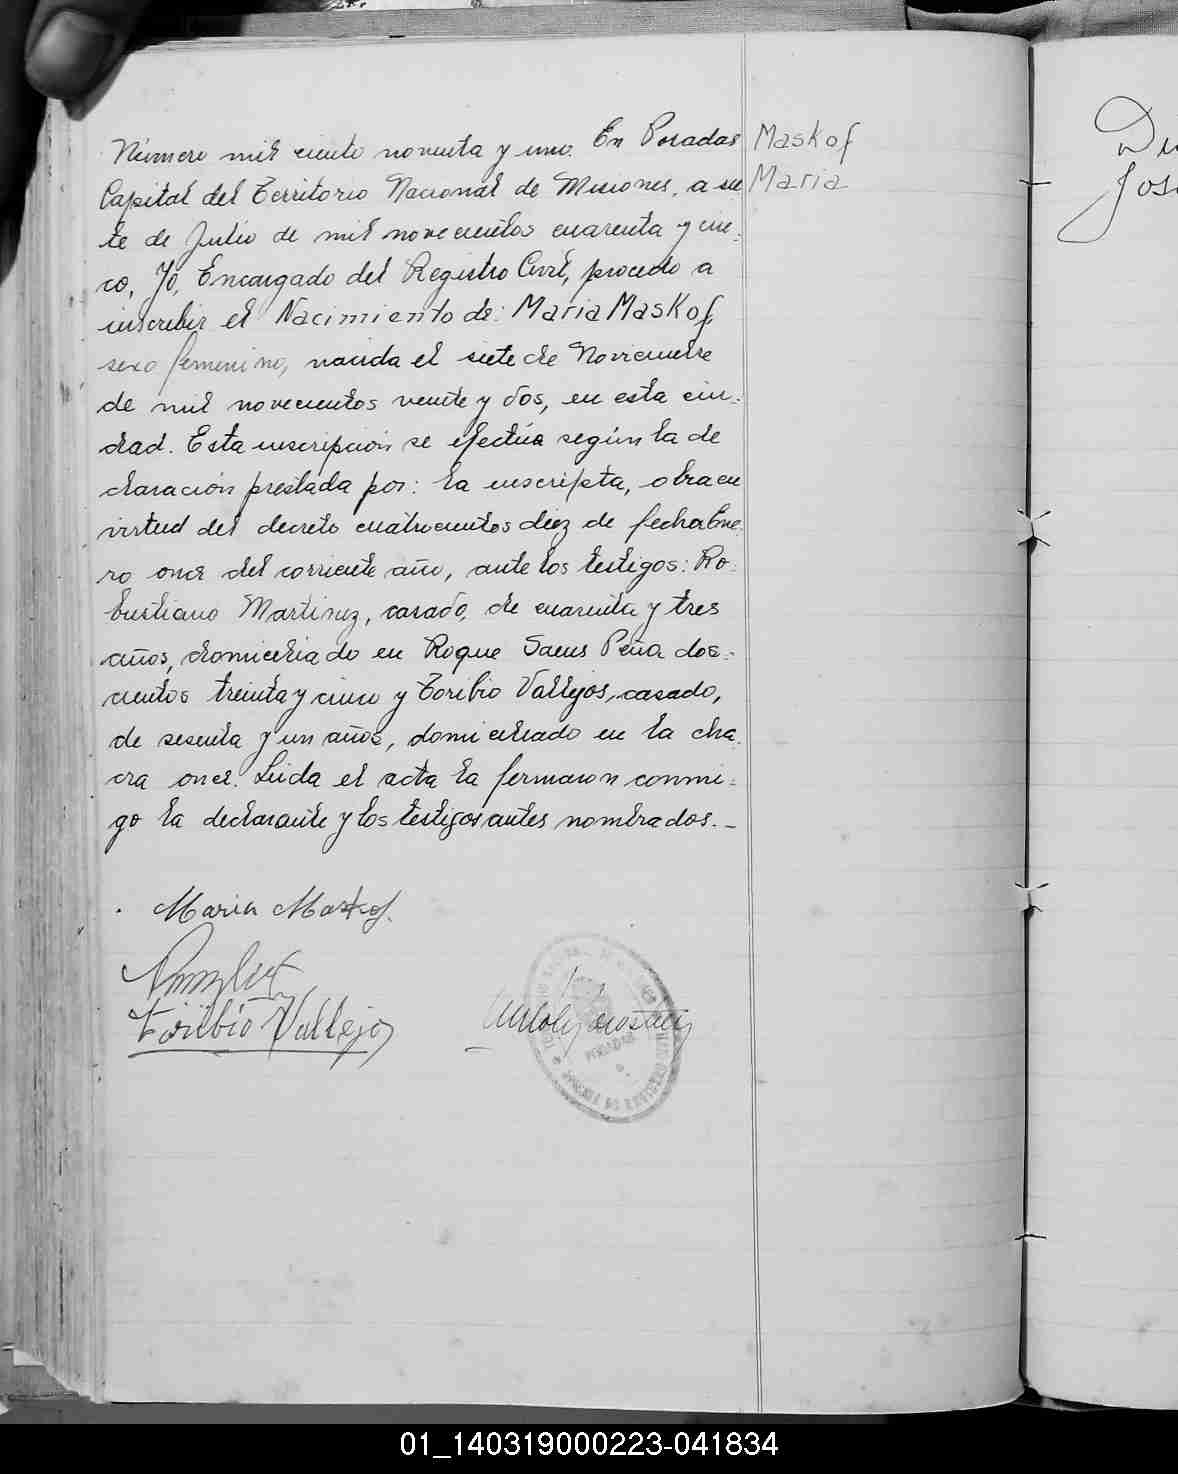 Número mil ciento noventa y uno. En Posadas
Capital del Territorio Nacional de Misiones, a sie
te de Julio de mil novecientos cuarenta y cin-
co, Yo, Encargado del Registro Civil, procedo a
inscribir el Nacimiento de: Maria Maskof
sexo femenino, nacida el siete de Noviembre
de mil novecientos veinte y dos, en esta ciu-
dad. Esta inscripción se efectúa según la de
claración prestada por: la inscripta, obra en
virtud del decreto cuatrocientos diez de fecha Ene-
ro once del corriente año, ante los testigos: Ro-
bustiano Martinez, casado, de cuarenta y tres
años, domiciliado en Roque Saens Peña dos-
cientos treinta y cinco y Toribio Vallejos, casado,
de sesenta y un años, domiciliado en la cha-
cra once. Leida el acta la firmaron conmi-
go la declarante y los testigos antes nombrados.-
Maskof
Maria
Maria Maskof.
Toribio Vallejos
POSADAS
José
01_140319000223-041834